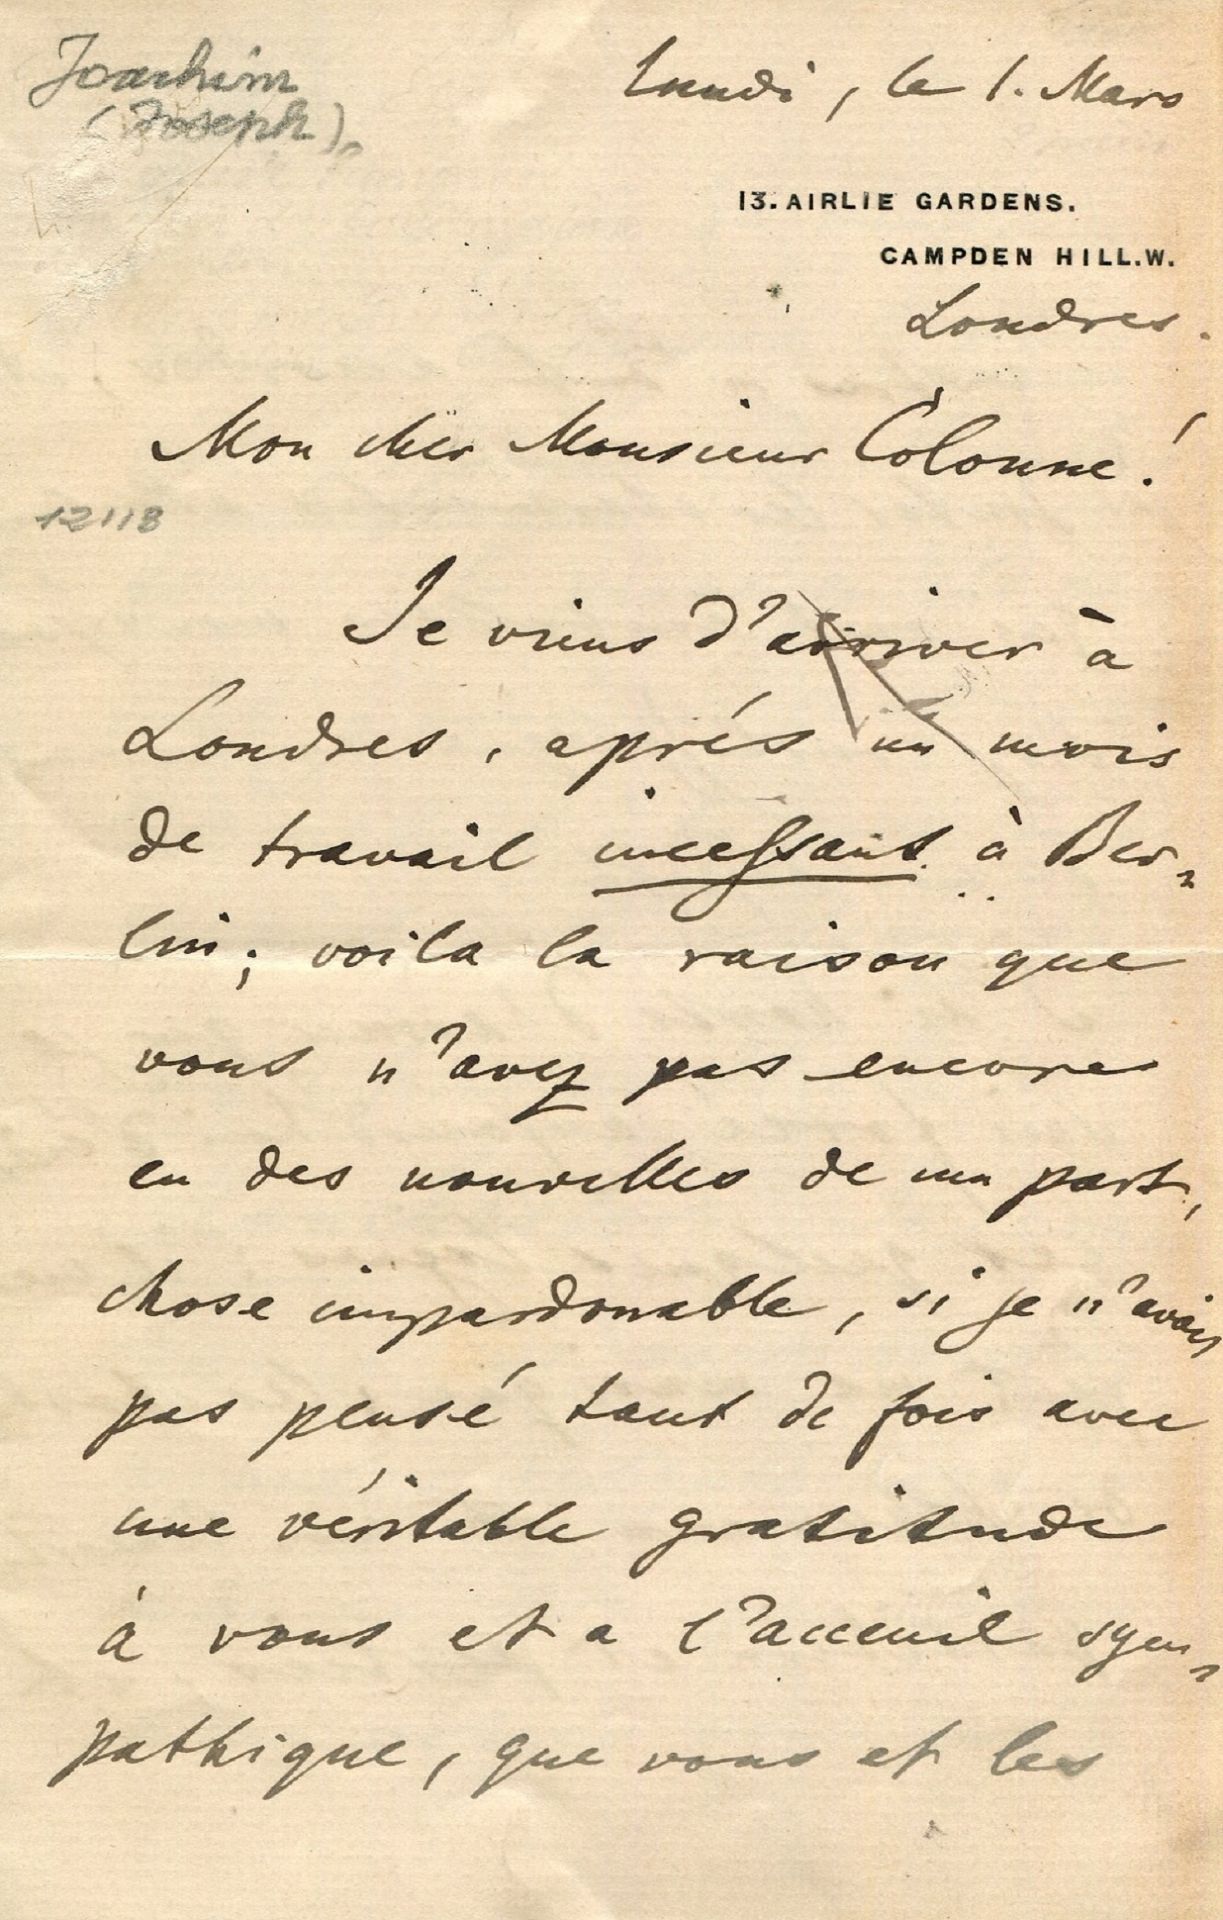 Joachim
(Joseph).
Lundi, le 1. Mars
13. AIRLIE GARDENS.
CAMPDEN HILL. W.
Londres.
Mon cher Monsieur Colonne!
12118
Je viens d'arriver à
Londres, après un mois
de travail incessant à Ber-
lin; voila la raison que
vous n'avez pas encore
eu des nouvelles de ma part,
chose impardonable, si je n'avais
pas pensé tant de fois avec
une véritable gratitude
à vous et a l'acceuil sym-
pathique, que vous et les